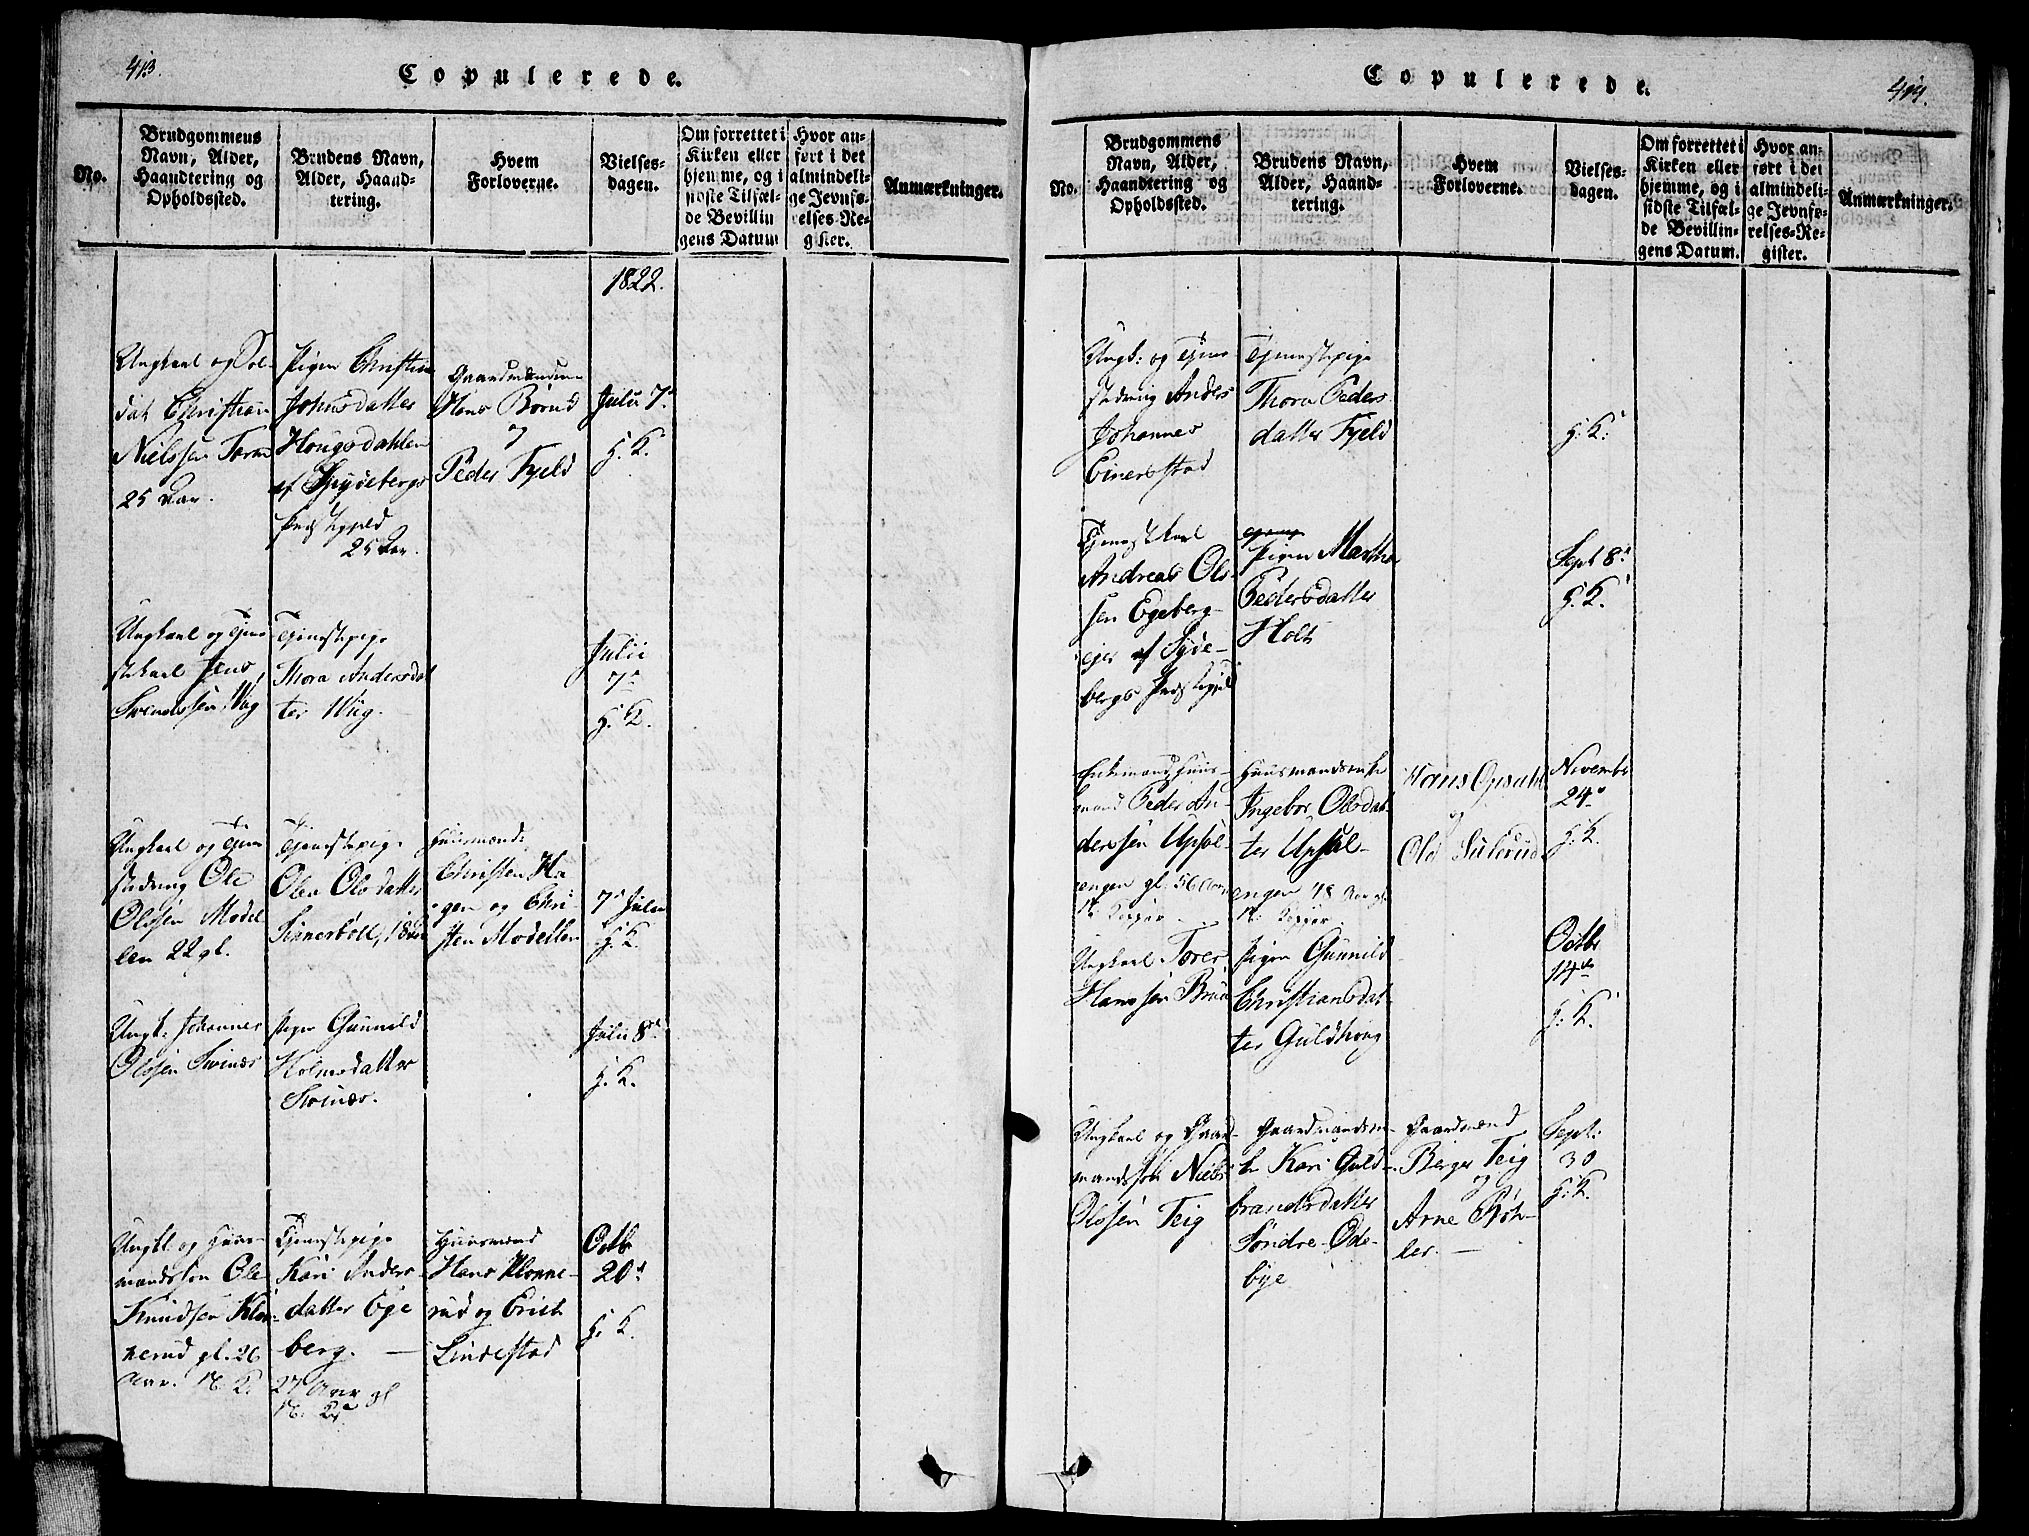 413.
Copulerede.
No.
Brudgommens
Navn, Alder,
Haandtering og
Opholdssted.
Brudens Navn,
Alder, Haand-
tering.
Hvem
Forloverne.
Vielses-
dagen.
Om forrettet i
Kirken eller
hjemme, og i
sidste Tilfæl-
de Bevillin
gens Datum
Hvor an-
ført i det
almindeli-
ge Jevnfø-
relses-Re-
gister.
Anmærkninger.
1822.
Ungkarl og Sol-
dat Christian
Nielssen
25 Aar.
Pigen Christin
Johnsdatter
Hougsdahlen
af Spydebergs
Præstegield
25 Aar.
Gaardmændene
Hans Börud
og
Peder Fjeld
Julii 7d
H. K.
Ungkarl og Tjene-
stekarl Jens
Svendssen Wiig
Tjenestepige
Thora Andersdat
ter Wiig.
Julii
7d
H. K.
Ungkarl og Tjene
stedreng Ole
Olssen Model
len 22 gl.
Tjenestepige
Olea Olsdatter
18 Aar
Huusmænd:
Christen Ha
gen og Chri-
sten Modellen
7d Julii
H. K.
Ungk: Johannes
Olssen Svinæs
Pigen Gunnild
Holmsdatter
Svinæs.
Julii 8de
H. K.
Ungk: og Huus-
mandssøn Ole
Knudsen Klon-
nerud gl. 26
Aar.
Tjenestepige
Kari Anders-
datter Ege
berg.
27 Aar gl
Huusmænd
Hans Klonne-
rud og Erich
Lindestad
Octbr
20d
H. K.
Copulerede.
414.
No.
Brudgommens
Navn, Alder,
Haandtering og
Opholdssted.
Brudens Navn,
Alder, Haand-
tering.
Hvem
Forloverne.
Vielses-
dagen.
Om forrettet i
Kirken eller
hjemme, og i
sidste Tilfæl-
de Bevillin-
gens Datum.
Hvor an-
ført i det
almindeli-
ge Jevnfø-
relses-Re-
gister.
Anmærkninger.
Ungk: og Tjene-
stedreng Anders
Johannes
Einerstad
Tjenestepige
Thora Peders
datter Fjeld
H. K:
Tjenestkarl
Andreas Ols-
sen Egeberg-
ejer af Spyde-
bergs Præstegield
Pigen Martha
Pedersdatter
Holt
Sept 8d
H. K.
Enkemand Huus-
mand Peder An-
derssen Upsal-
engen gl. 56 Aar
Huusmandsenke
Ingebor Olsdat-
ter Upsal-
engen 48 Aar gl.
Hans Opsahl
og
Ole
Novembr
24d
H. K.
Ungkarl Tores
Hanssen
Pigen Gunnild
Christiansdat-
ter Guldhoug
Octbr
14de
H. K.
Ungkarl og Gaard-
mandssøn Niels
Olssen Teig
Gaardmandsen-
ke Kari Guld-
brandsdatter
Søndre Ode-
bye
Gaardmænd
Berger Teig
og
Arne
Sept:
30
H. K.